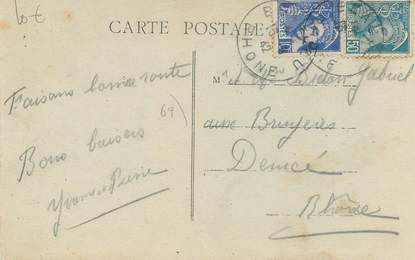 lot
CARTE POSTALE
RHONE
Faisons bonne route
69
Bons baisers
Yvonne et Pierre
Bidon Gabriel
aux Bruyères
Denicé
Rhône